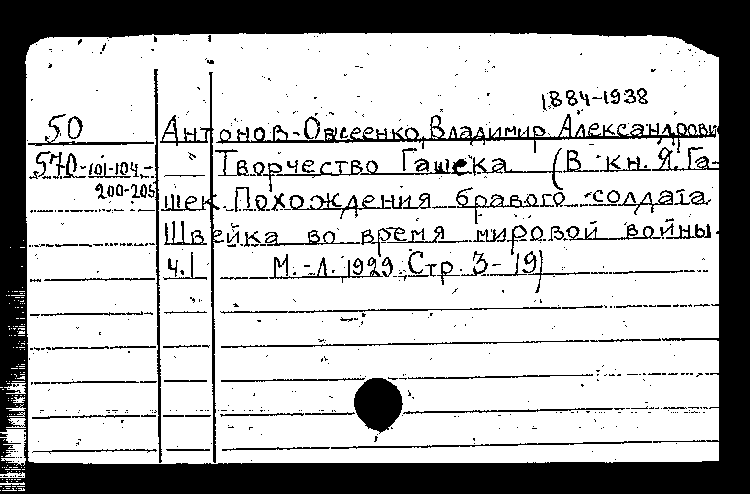 1884-1938
50 Антонов-Овсеенко, Владимир Александрович
570-101-104,- Творчество Гашека (В кн. Я. Га-
200-205 шек. Похождения бравого солдата
Швейка во время мировой войны.
ч.1 М.-Л. 1929 Стр. 3-19)